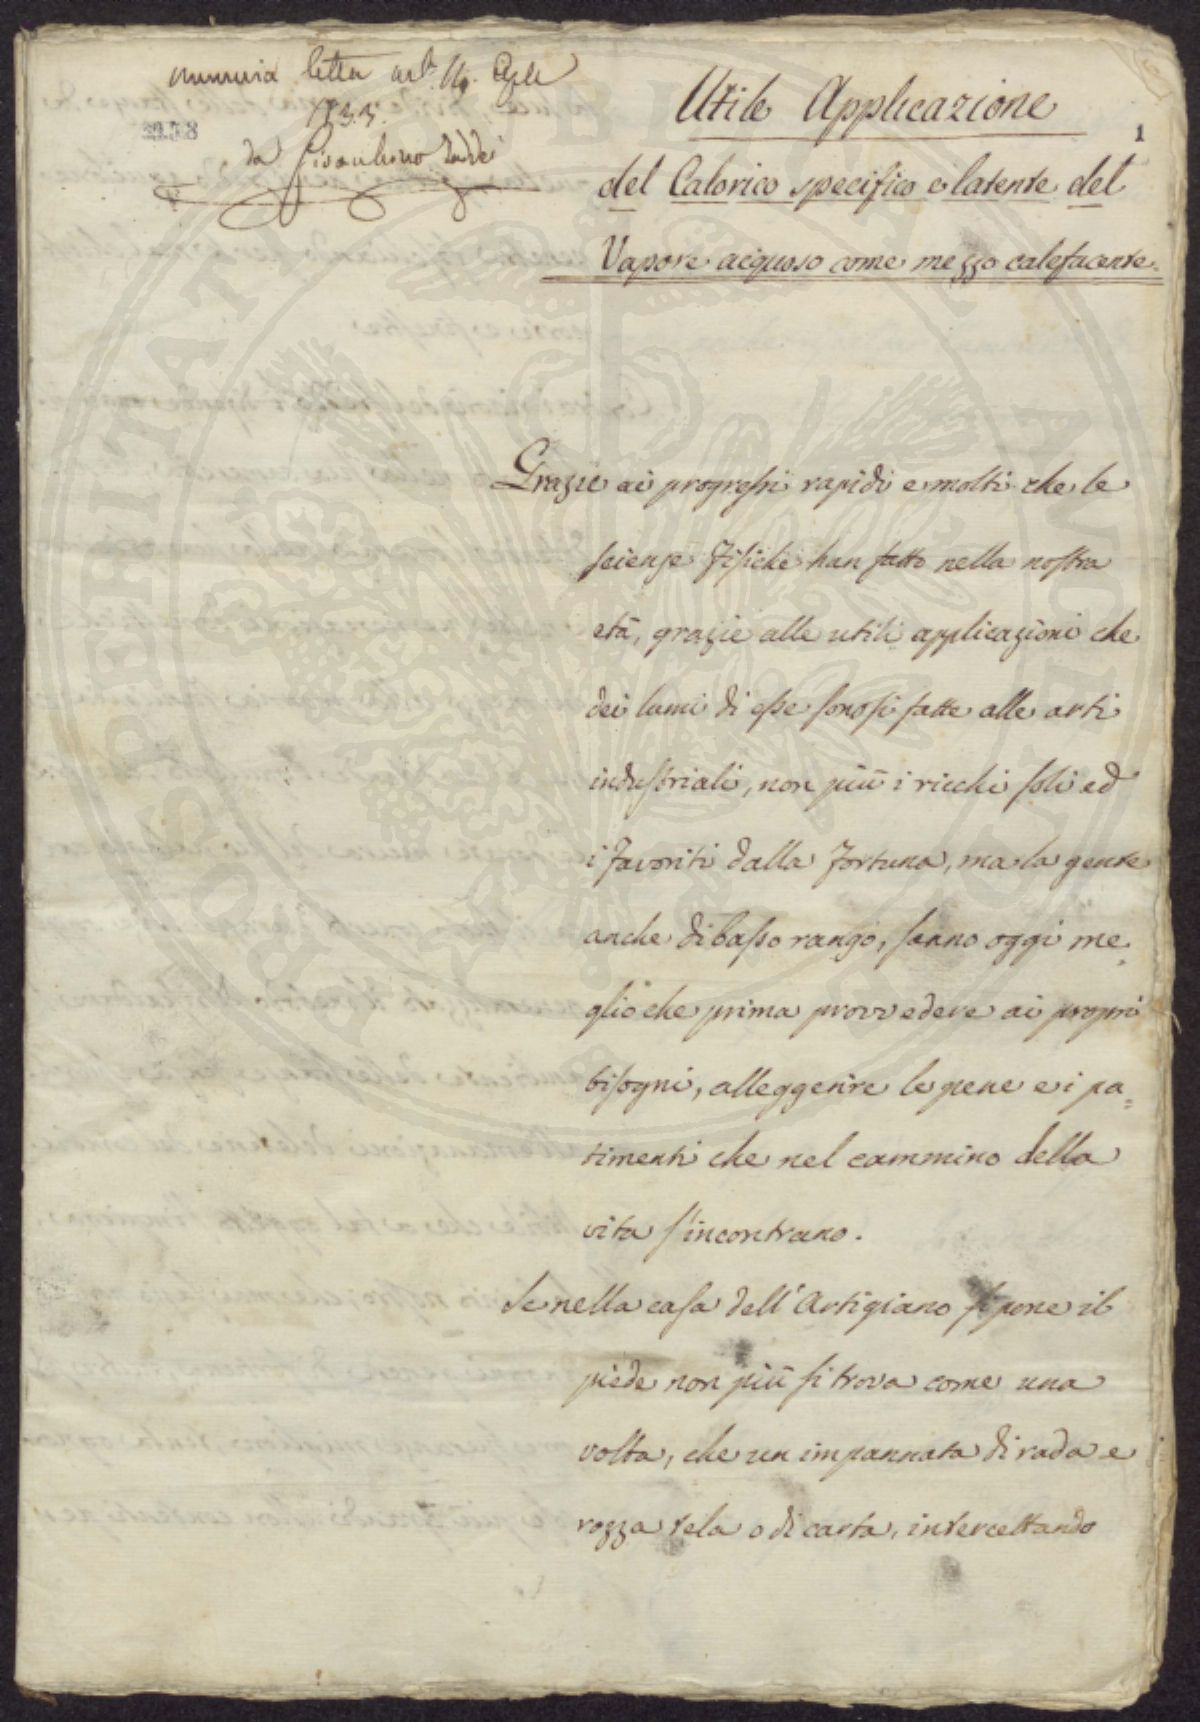 memoria letta
1835.
da Gioacchino Taddei
2958
1
Utile Applicazione
del Calorico specifico e latente del
Vapore acquoso come mezzo calefacente.
Grazie ai progressi rapidi e molti che le
scienze Fisiche han fatto nella nostra
età, grazie alle utili applicazioni che
dei lumi di esse sonosi fatte alle arti
industriali, non più i ricchi soli ed
i favoriti dalla Fortuna, ma la gente
anche di basso rango, sanno oggi me=
glio che prima provvedere ai propri
bisogni, alleggerire le pene e i pa=
timenti che nel cammino della
vita s'incontrano.
Se nella casa dell'Artigiano si pone il
piede non più si trova come una
volta, che un impannata di rada e
rozza tela o di carta, intercettando